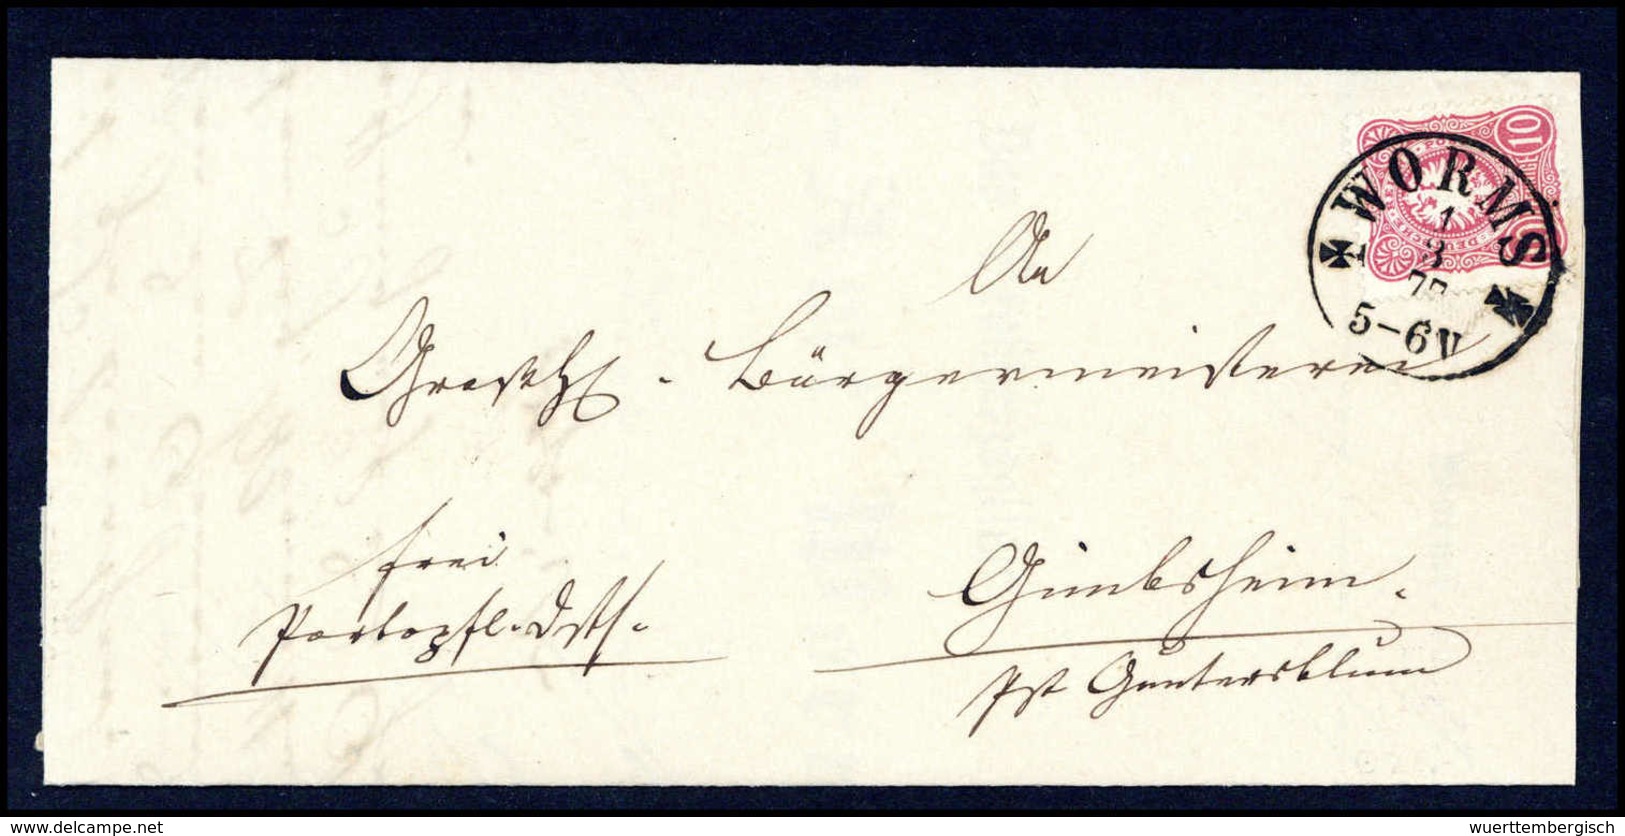 10
WORMS
1
3
77
5-6 V
An
Grosh. Bürgermeisterei
frei
Portopfl. Dsts.
Gimbsheim.
Pst Guntersblum
delcampe.net
wuerttembergisch